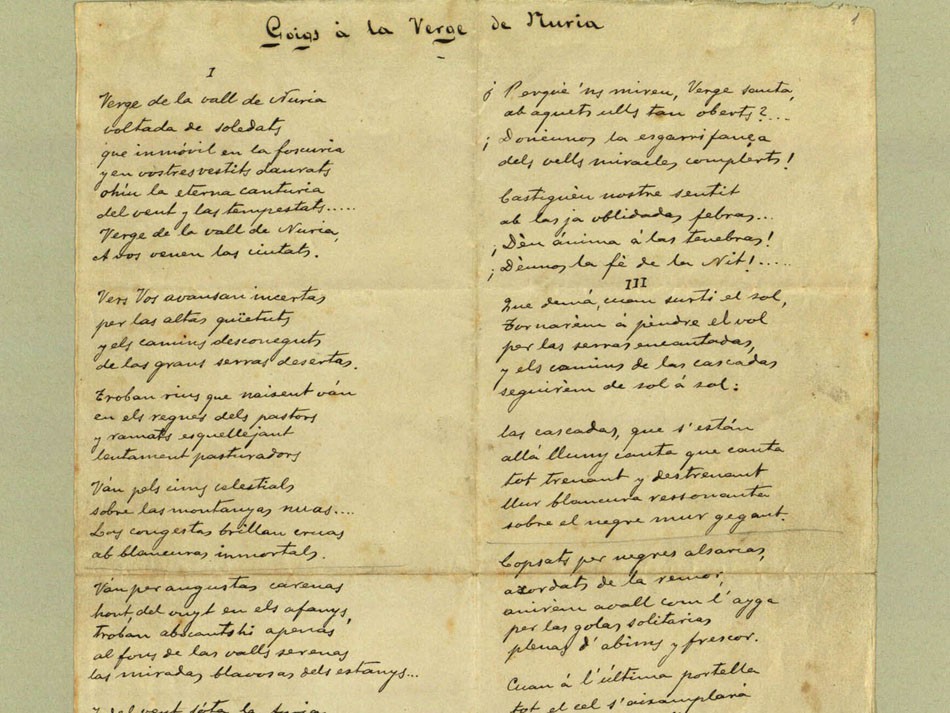 Goigs à la Verge de Nuria
1
I
Verge de la vall de Nuria
voltada de soledats
que inmóvil en la foscuria
y en vostres vestits daurats
ohiu la eterna canturia
del vent y las tempestats.....
Verge de la vall de Nuria,
A vos venen las ciutats.
Vers Vos avansan incertas
per las altas quietuts
y els camins desconeguts
de las grans serras desertas.
Troban rius que naixent ván
en els regnes dels pastors
y ramats esquellejant
lentament pasturadors
Ván pels cims celestials
sobre las montanyas nuas....
Las congestas brillan cruas
ab blancuras inmortals.
Ván per angustas carenas
hont, del vuyt en els afanys,
troban abscantshi apenas,
al fons de las valls serenas
las miradas blavosas dels estanys...
¿ Perqué 'ns mireu, Verge santa,
ab aquets ulls tan oberts?....
¡ Donéunnos la esgarrifança
dels vells miracles complerts!
Castiguèu nostre sentit
ab las ja oblidadas febras...
¡Dèu ánima á las tenebras!
¡Dèunnos la fè de la Nit!.....
III
Que demá, cuan surti el sol,
Tornarèm á pendre el vol
per las serras encantadas,
y els camins de las cascadas
seguirèm de sol á sol:
las cascadas, que s'están
allá lluny canta que canta
tot trenant y destrenant
llur blancura ressonanta
sobre el negre mur gegant.
Copsats per negres alsarias,
axordats de la remor,
anirèm avall com l'ayga
per las golas solitarias
plenas d'abims y frescor.
Cuan á l'última portella
tot el cel s'aixamplará